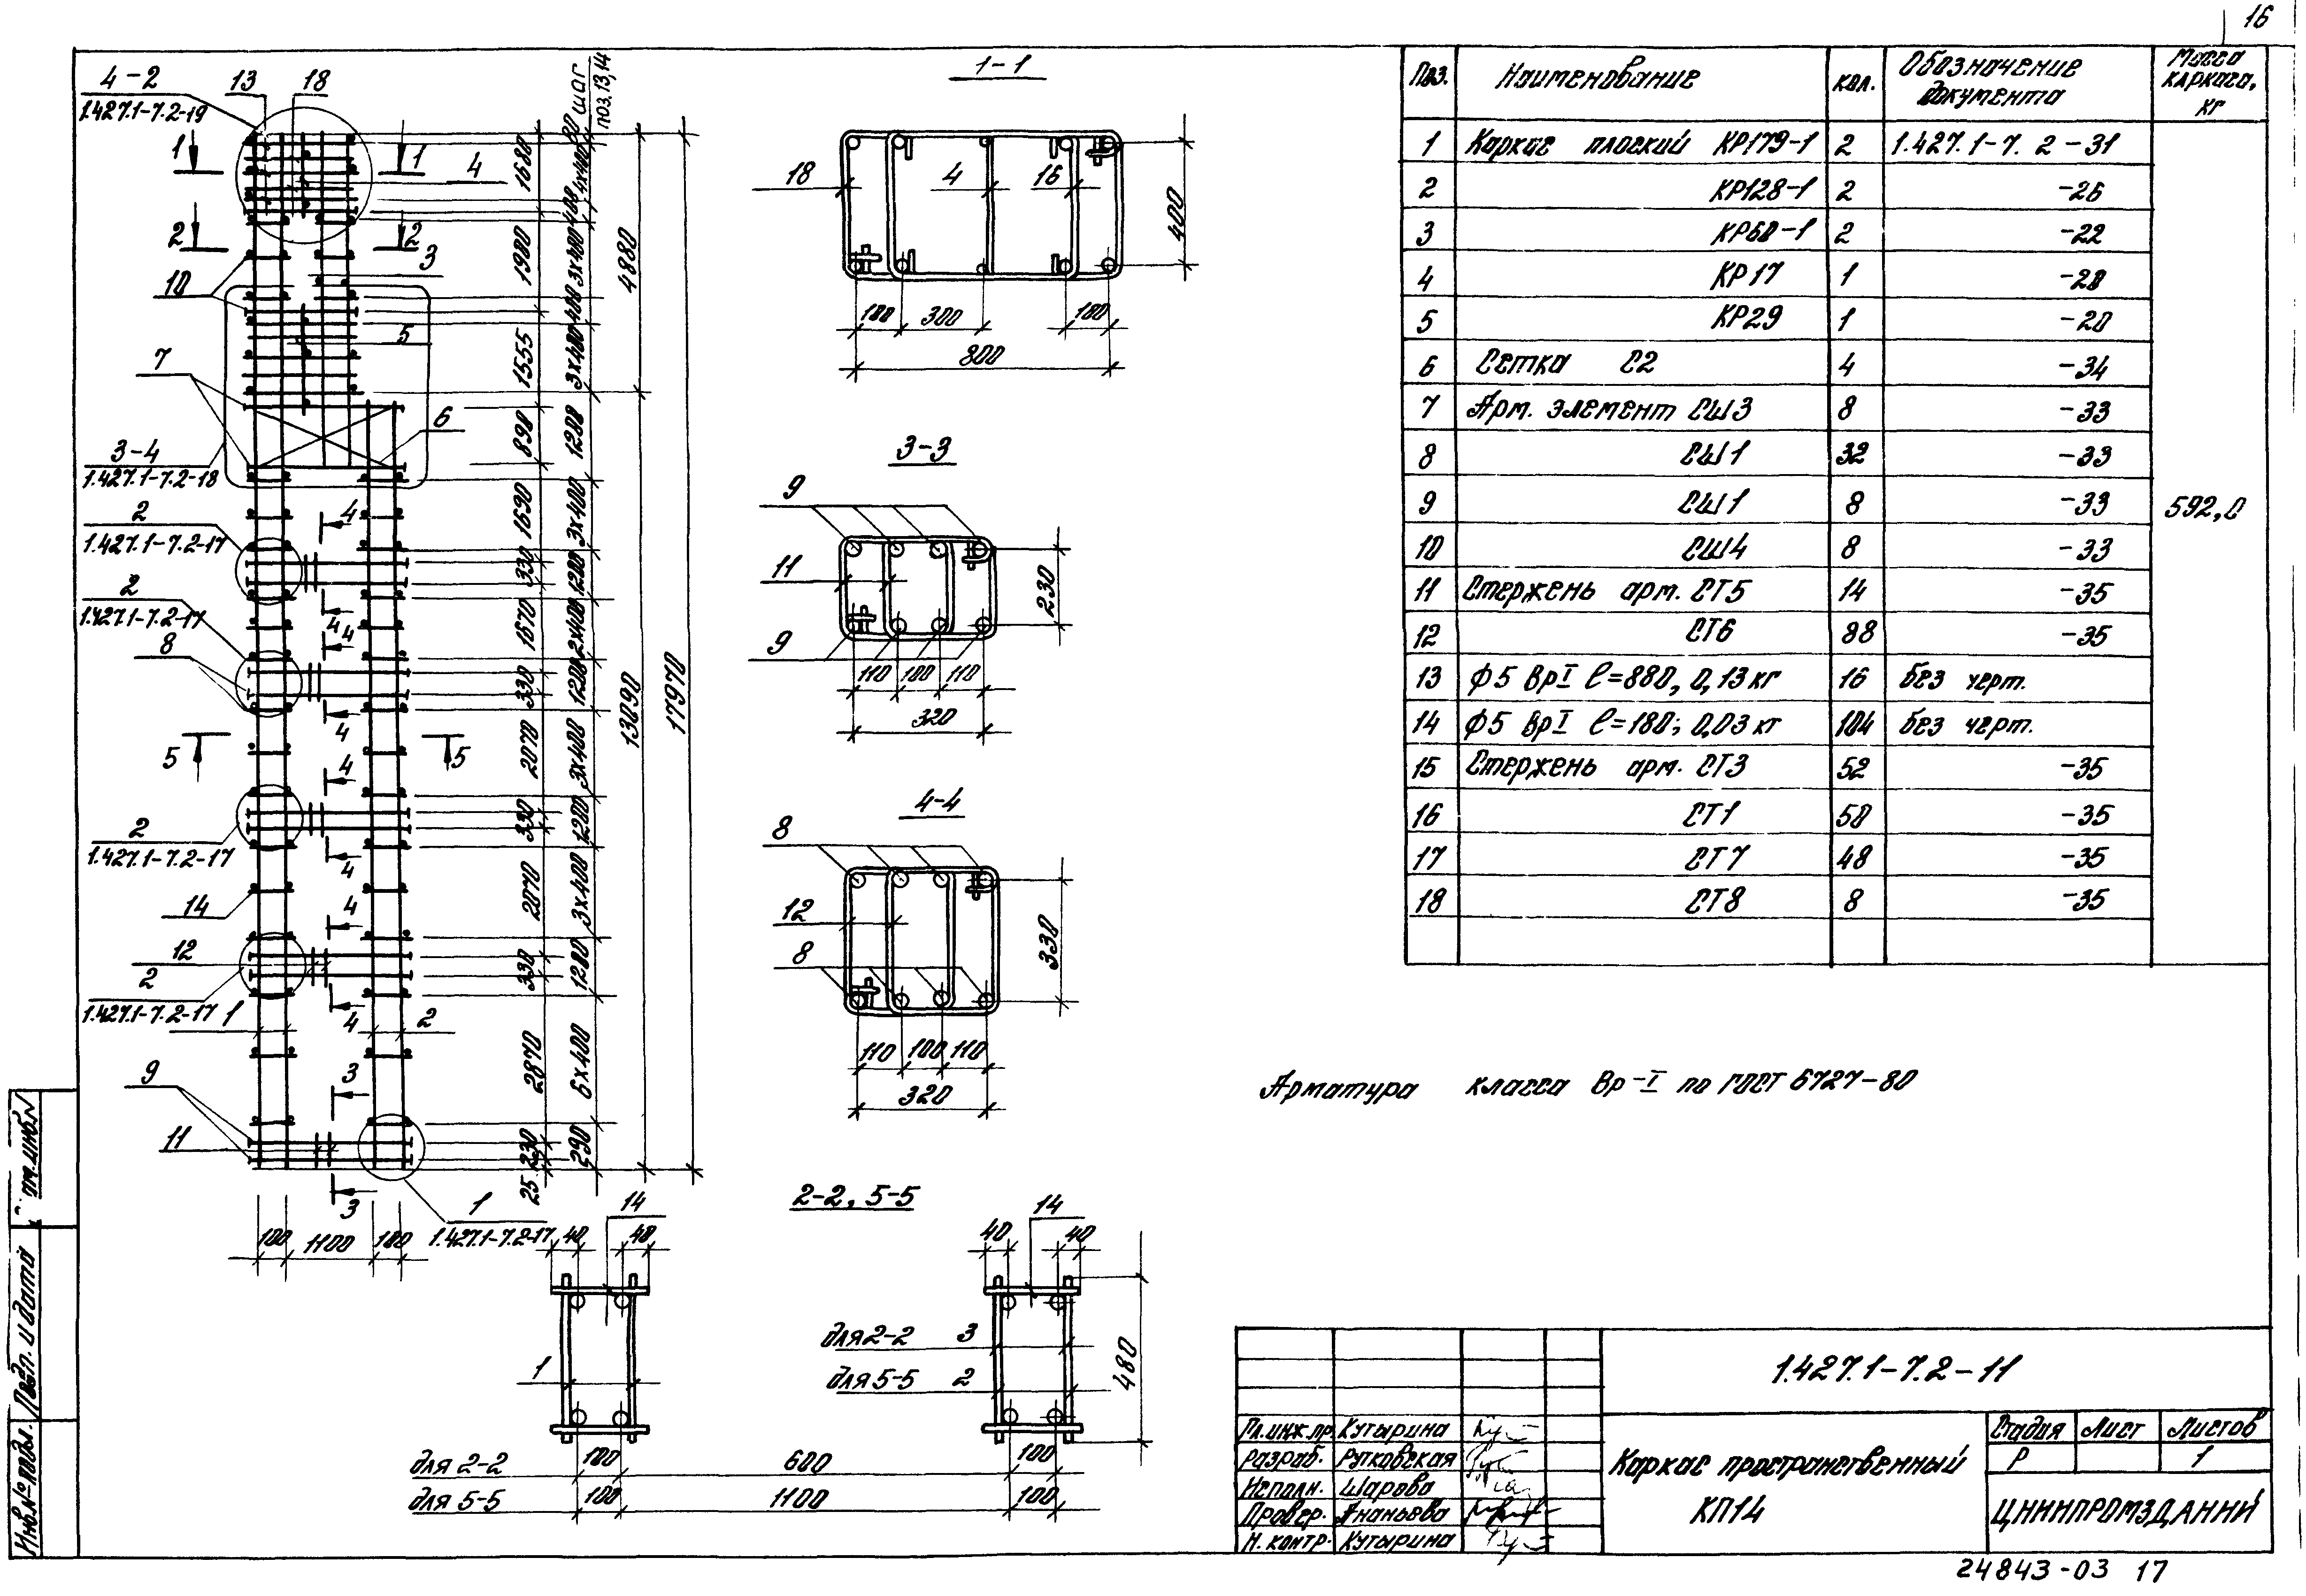 16
4-2
1.427.1-7.2-19
13
18
1
1
4
2
2
3
10
5
7
6
3-4
1.427.1-7.2-18
2
1.427.1-7.2-17
4
2
1.427.1-7.2-17
4
4
8
4
5
5
4
2
1.427.1-7.2-17
4
14
4
12
2
1.427.1-7.2-17
4
1
2
9
3
11
3
1
1.427.1-7.2-17
100
1100
100
1680
1980
1555
890
1690
330
1670
330
2070
330
2070
330
2870
230
25
80
шаг
поз.13,14
4х400
400
3х400
400
3х400
1200
3х400
1200
2х400
1200
3х400
1200
3х400
1200
6х400
290
4880
13090
17970
1-1
18
4
16
400
100
300
100
800
3-3
9
11
9
230
110
100
110
320
4-4
8
12
8
330
110
100
110
320
2-2, 5-5
14
40
40
1
14
40
40
для 2-2 3
для 5-5 2
480
для 2-2 100 600 100
для 5-5 100 1100 100
Поз. Наименование кол. Обозначение документа Масса каркаса, кг
1 Каркас плоский КР179-1 2 1.427.1-7.2-31
2 КР128-1 2 -26
3 КР60-1 2 -22
4 КР17 1 -20
5 КР29 1 -20
6 Сетка С2 4 -34
7 Арм. элемент СШ3 8 -33
8 СШ1 32 -33
9 СШ1 8 -33 592,0
10 СШ4 8 -33
11 Стержень арм. СТ5 14 -35
12 СТ6 88 -35
13 ф5 ВрI l=880, 0,13 кг 16 без черт.
14 ф5 ВрI l=180; 0,03 кг 104 без черт.
15 Стержень арм. СТ3 52 -35
16 СТ1 50 -35
17 СТ7 48 -35
18 СТ8 8 -35
Арматура класса Вр-I по ГОСТ 6727-80
1.427.1-7.2-11
Гл.инж.пр. Кутырина
Разраб. Рутковская
Исполн. Шарова
Провер. Ананьева
Н. контр. Кутырина
Каркас пространственный
КП14
Стадия Лист Листов
Р 1
ЦНИИПРОМЗДАНИЙ
24843-03 17
Инв.№ подл.
Подп. и дата